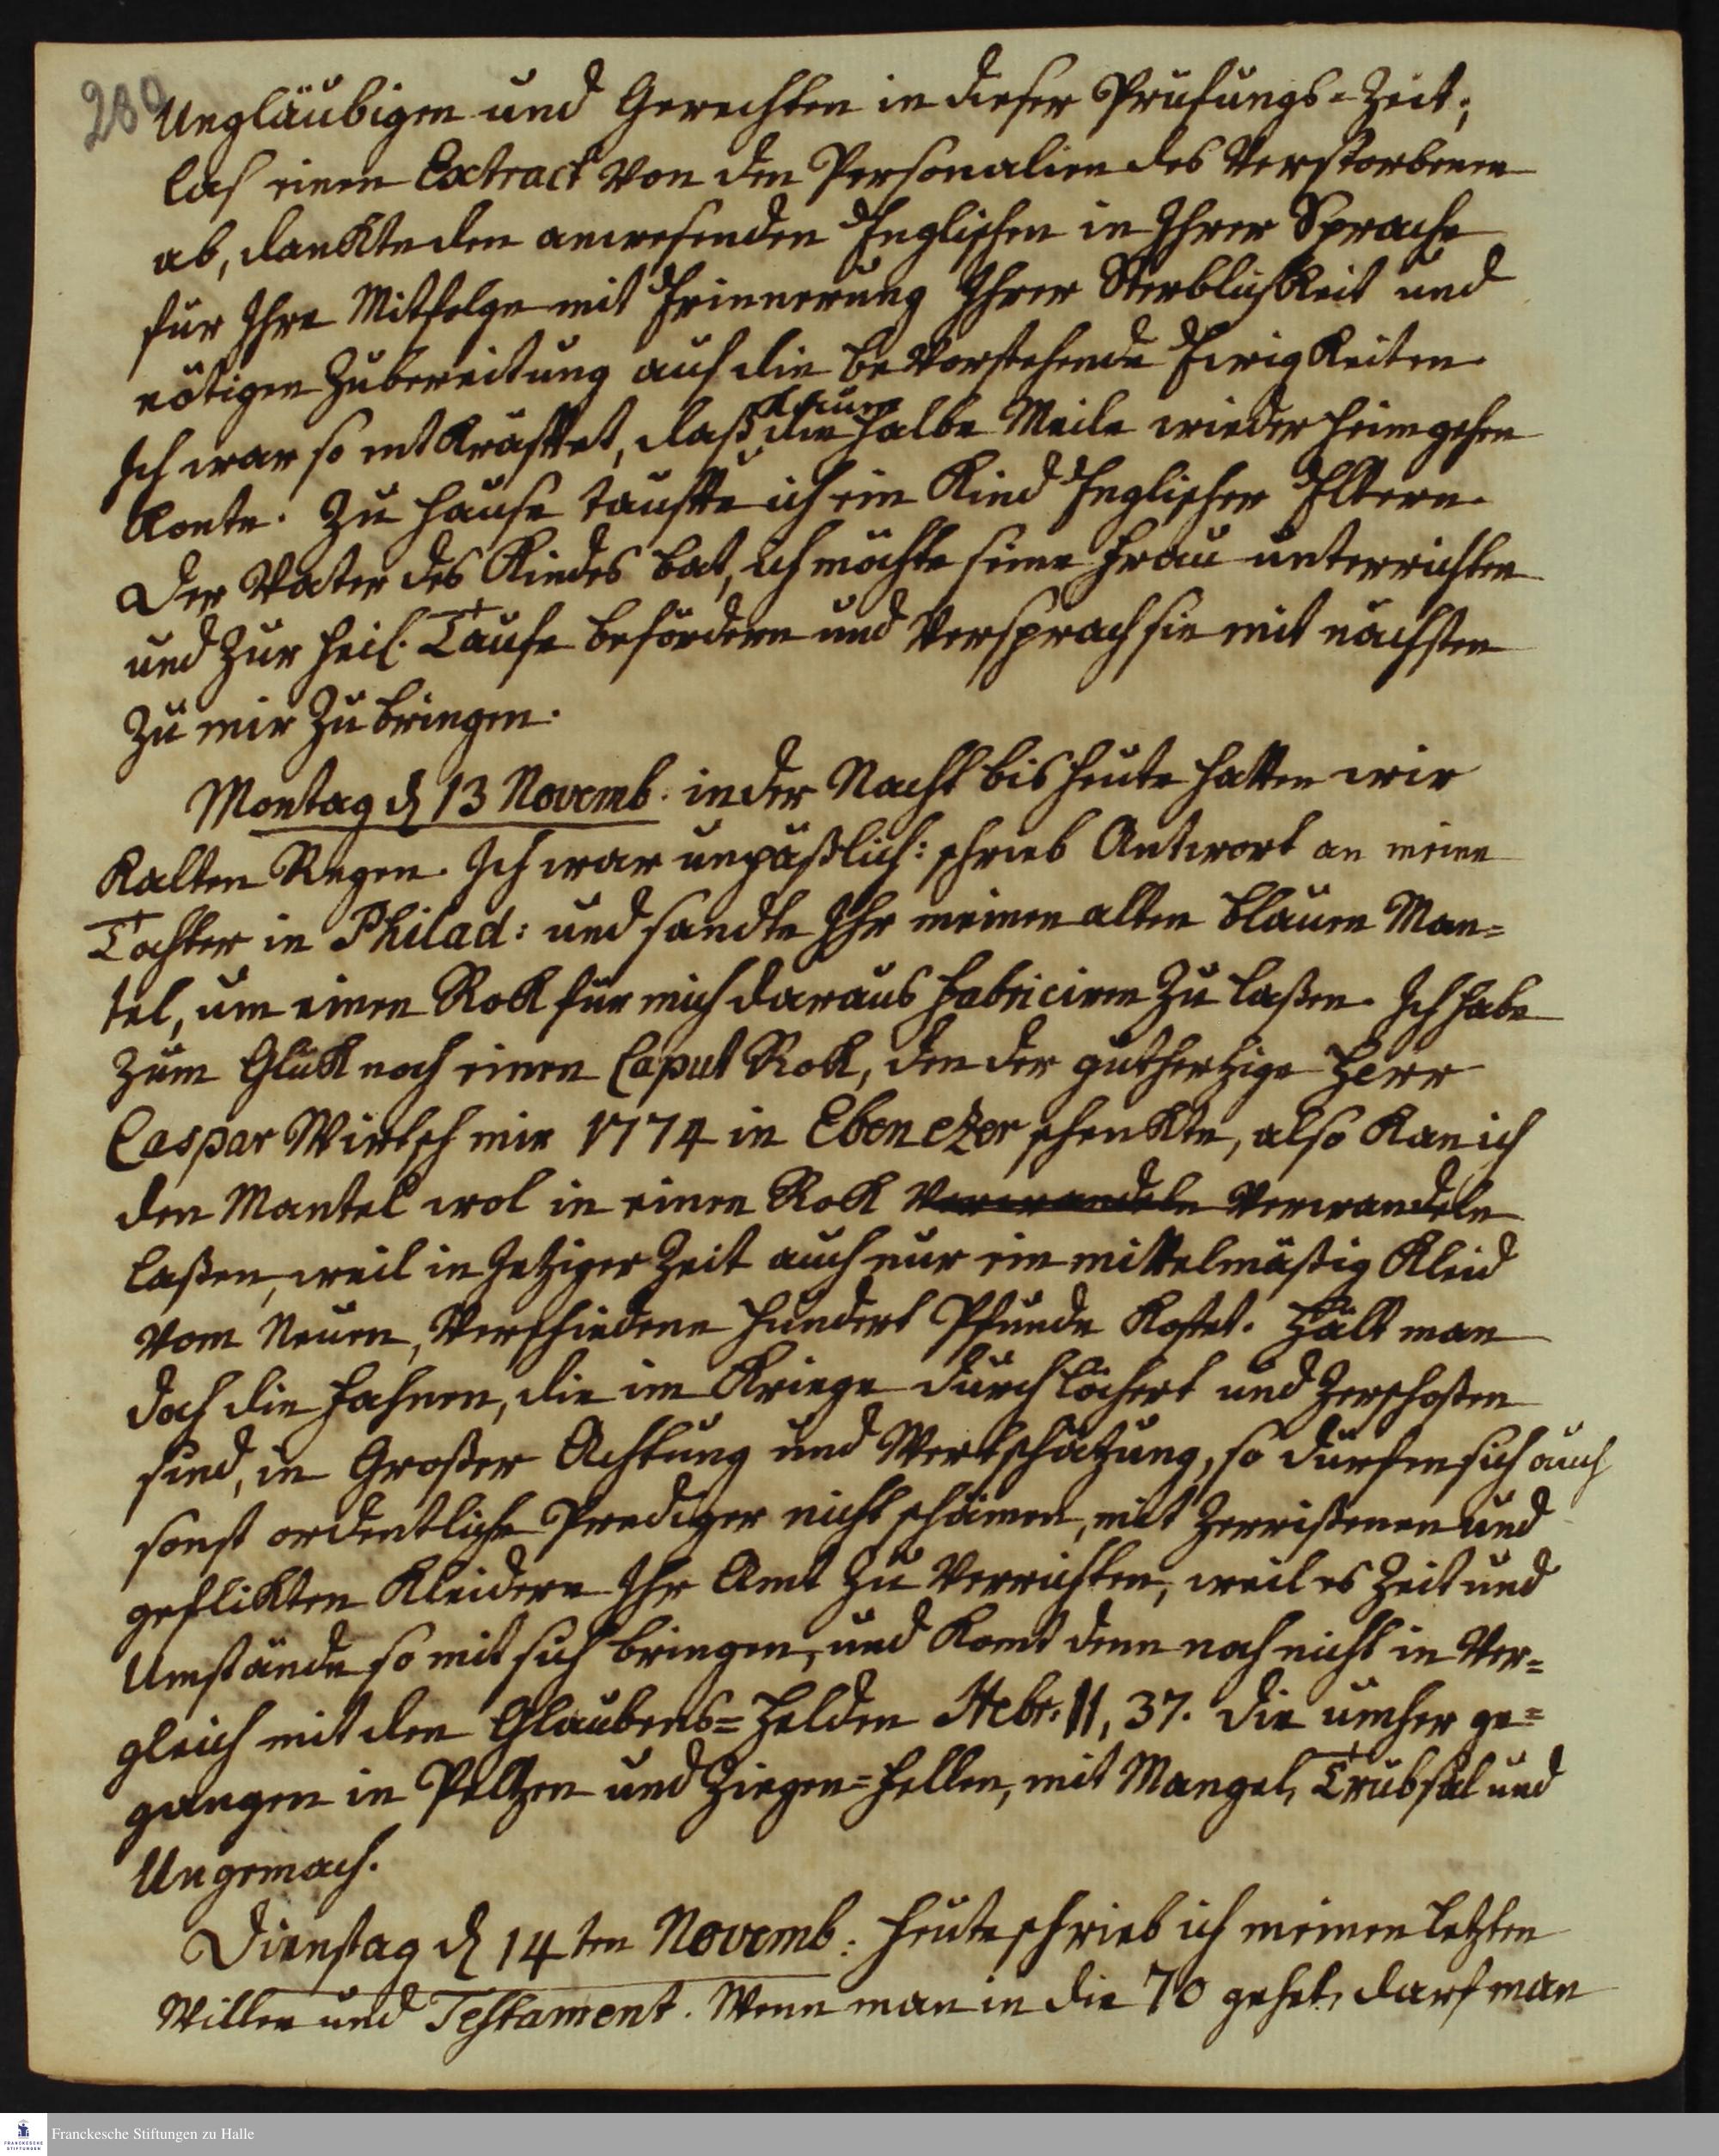 280
Ungläubigen und Gerechten in dieser Prüfungs-Zeit;
las einen Extract von den Personalien des Verstorbenen
ab, dankte den anwesenden Englischen in Ihrer Sprache
für Ihre Mitfolge mit Erinnerung Ihrer Sterblichkeit und
nötigen Zubereitung auf die bevorstehende Ewigkeiten.
kaum
Ich war so entkräfftet, daß die halbe Meile wieder heimgehen
konte. Zu Hause tauffte ich ein Kind Englischer Eltern.
Der Vater des Kindes bat, ich möchte seine Frau unterrichten
und zur heil. Taufe befördern und versprach sie mit nächsten
zu mir zu bringen.
Montag d 13 Novemb. in der Nacht bis heute hatten wir
kalten Regen. Ich war unpäßlich: schrieb Antwort an meine
Tochter in Philad: und sandte Ihr meinen alten blauen Man=
tel, um einen Rok für mich daraus fabriciren zu laßen. Ich habe
zum Glük noch einen Caput Rok, den der guthertzige Herr
Caspar Wirtsch mir 1774 in Ebenezer schenkte, also kan ich
den Mantel wol in einen Rok verwandeln verwandeln
laßen, weil in jetziger Zeit auch nur ein mittelmäßig Kleid
vom Neuen, verschiedene hundert Pfunde kostet. Hält man
doch die Fahnen, die im Kriege durchlöchert und zerschoßen
sind, in Großer Achtung und Wertschätzung, so dürfen sich auch
sonst ordentliche Prediger nicht schämen, mit zerrißenen und
geflikten Kleidern Ihr Amt zu verrichten, weil es Zeit und
Umstände so mit sich bringen, und komt denn noch nicht in Ver=
gleich mit den Glaubens=Helden Hebr. 11, 37. die umher ge=
gangen in Peltzen und Ziegen=Fellen, mit Mangel, Trübsal und
Ungemach.
Dienstag d 14ten Novemb: heute schrieb ich meinen letzten
Willen und Testament. Wenn man in die 70 gehet, darf man
FRANCKESCHE STIFTUNGEN
Franckesche Stiftungen zu Halle